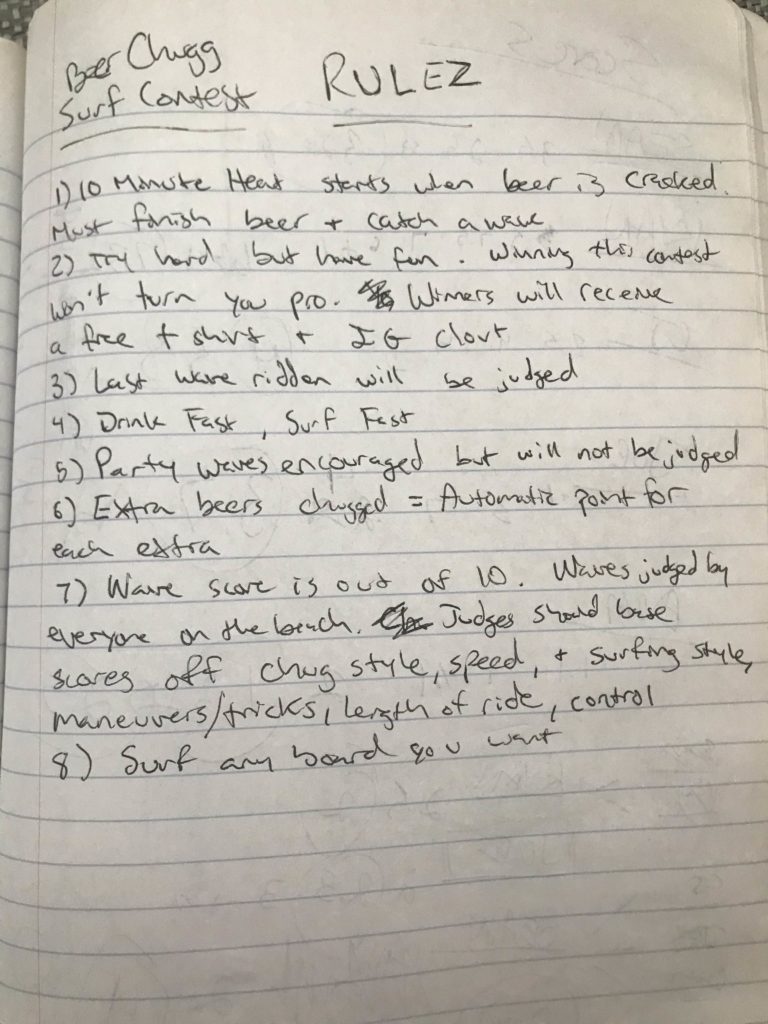 Beer Chugg
Surf Contest
RULEZ
1) 10 Minute Heat starts when beer is cracked.
Must finish beer + catch a wave
2) Try hard but have fun. Winning this contest
won't turn you pro. Winners will receive
a free t shirt + IG clout
3) Last wave ridden will be judged
4) Drink Fast, Surf Fast
5) Party waves encouraged but will not be judged
6) Extra beers chugged = Automatic point for
each extra
7) Wave score is out of 10. Waves judged by
everyone on the beach. Judges should base
scores off chug style, speed, + surfing style,
maneuvers/tricks, length of ride, control
8) Surf any board you want